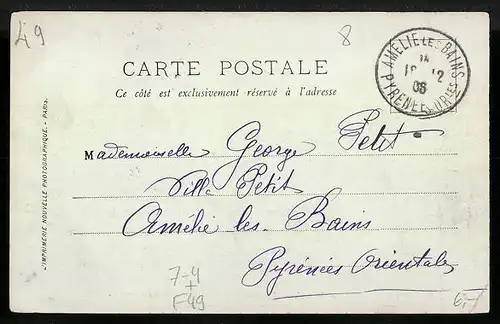 49
8
AMELIE LES BAINS
12
03
PYRENEES ORLES
CARTE POSTALE
Ce côté est exclusivement réservé à l'adresse
Mademoiselle George Petit
Villa Petit
Amélie les Bains
Pyrénées Orientales
L'IMPRIMERIE NOUVELLE PHOTOGRAPHIQUE - PARIS.
7-4
+
F49
6,-